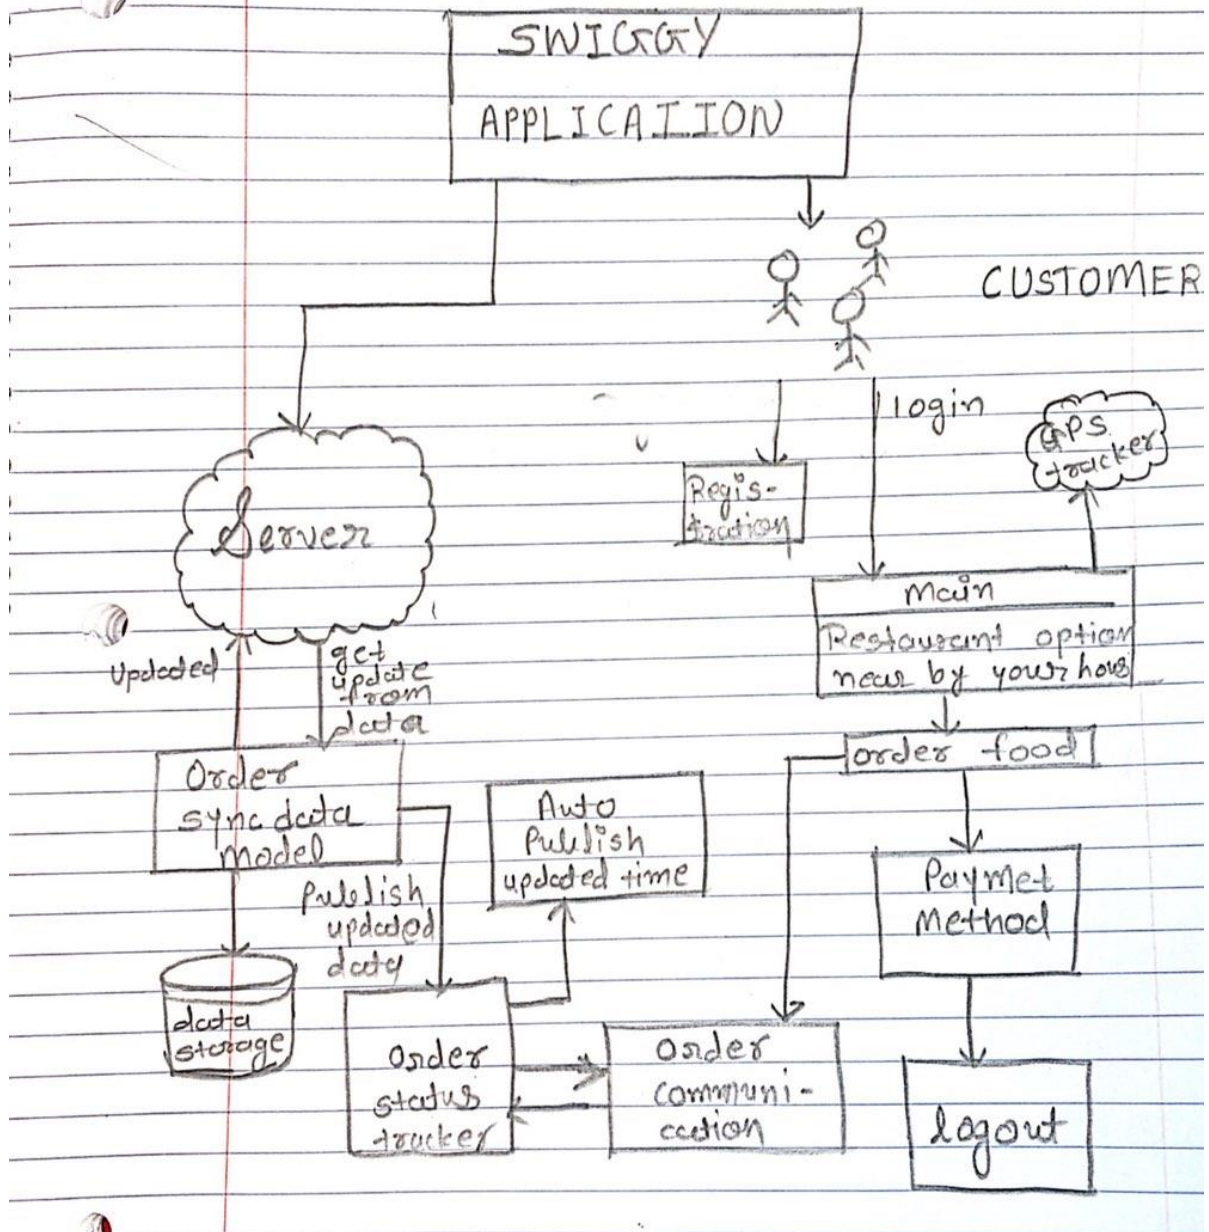 SWIGGY
APPLICATION
CUSTOMER
login
GPS
tracker
Regis-
tration
Server
Main
Restaurant option
near by your hous
Updated
get
update
from
data
order food
Order
sync data
Model
Auto
Publish
updated time
Paymet
Method
Publish
updated
data
data
storage
Order
status
tracker
Order
communi-
cation
logout